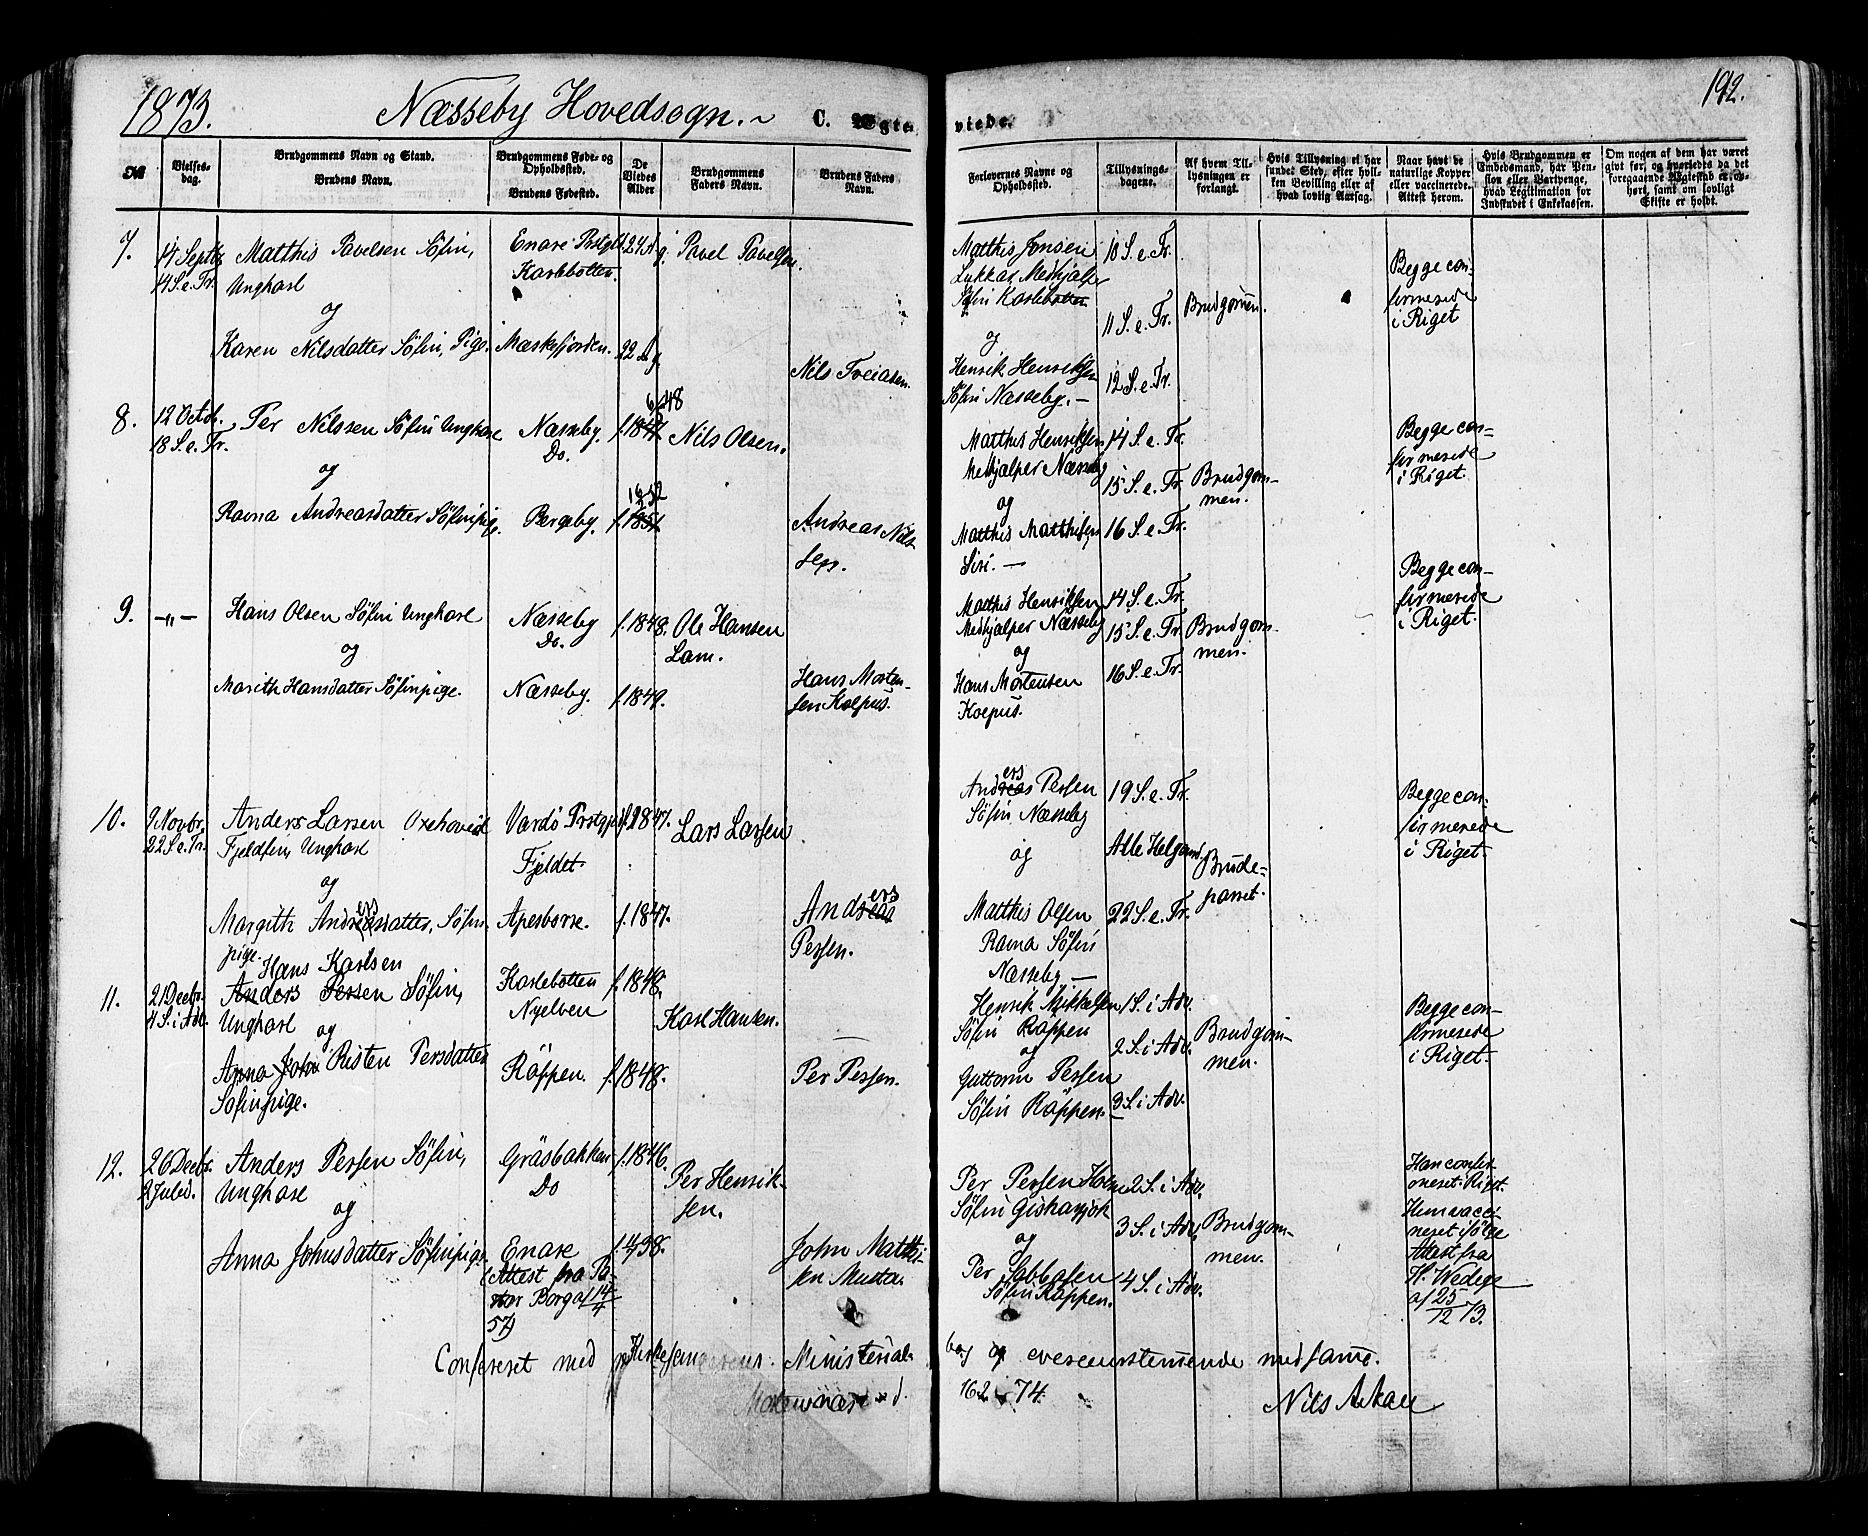 1873.
Næsseby Hovedsogn.
C. Ægte
viede.
192.
No
Vielses-
dag.
Brudgommens Navn og Stand.
Brudens Navn.
Brudgommens Føde- og
Opholdssted.
Brudens Fødested.
De
Viedes
Alder
Brudgommens
Faders Navn.
Brudens Faders
Navn.
Forlovernes Navne og
Opholdssted.
Tillysnings-
dagene.
Af hvem Til-
lysningen er
forlangt.
Hvis Tillysning ei har
fundet Sted, efter hvil-
ken Bevilling eller af
hvad lovlig Aarsag.
Naar havt de
naturlige Kopper
eller vaccinerede.
Attest herom.
Hvis Brudgommen er
Embedsmand, har Pen-
sion eller Vartpenge,
hvad Legitimation for
Indskudet i Enkekassen.
Om nogen af dem har været
givt før, og hvorledes da det
foregaaende Ægteskab er op-
hørt, samt om lovligt
Skifte er holdt.
7.
14 Septbr
14 S. e. Tr.
Matthis Pavelsen Söfin,
Ungkarl
og
Karen Nilsdatter Söfin, Pige.
Enare Prstgjld
Karlebotten.
Mæskefjorden.
22 A g.
Pavel Pavelsen.
Nils Tveiasen.
Matthis Jonsen
Lukkas, Medhjælper
Söfin Karlebotten
og
Henrik Henriksen
Söfin Næsseby. —
10 S. e. Tr.
11 S. e. Tr.
12 S. e. Tr.
Brudgommen.
Begge con-
firmerede
i Riget
8.
12 Octob.
18 S. e. Tr.
Per Nilssen Söfin Ungkarl
og
Ravna Andreasdatter Söfinpige.
Næsseby.
Do.
Bergeby.
6/2 48
f. 1847
52
f. 1851
Nils Olsen.
Andreas Nils-
sen.
Matthis Henriksen
Medhjælper Næsseby
og
Matthis Matthisen
Siri. —
14 S. e. Tr.
15 S. e. Tr.
16 S. e. Tr.
Brudgom-
men.
Begge con-
firmerede
i Riget.
9.
—"—
Hans Olsen Söfin Ungkarl
og
Marith Hansdatter Söfinpige.
Næsseby
Do.
Næsseby.
f. 1848.
f. 1849.
Ole Hansen
Lam.
Hans Morten-
sen Koepus.
Matthis Henriksen
Medhjælper Næsseby
og
Hans Mortensen
Koepus.
14 S. e. Tr.
15 S. e. Tr.
16 S. e. Tr.
Brudgom-
men.
Begge con-
firmerede
i Riget.
10.
9 Novbr.
22 S. e. Tr.
Anders Larsen Oxehoved
Fjeldfin, Ungkarl
og
Margith Andreasdatter, Söfin-
ers
pige.
Vardö Prstgjeld
Fjeldet.
Apesborre.
f. 1847.
f. 1847.
Lars Larsen
ers
Andreas
Persen.
ers
Andreas Persen
Söfin Næsseby
og
Matthis Olsen
Ravna Söfin
Næsseby. —
19 S. e. Tr.
Alle Helgens
22 S. e. Tr.
Brude-
parret.
Begge con-
firmerede
i Riget.
11.
21 Decbr.
4 S. i Adv.
Hans Karlsen
Anders Persen Söfin,
Ungkarl
og
Anna John Risten Persdatter
Söfinpige.
Karlebotten
Nyelven
Räppen.
f. 1848.
f. 1848.
Karl Hansen.
Per Persen.
Henrik Mikkelsen
Söfin Räppen
og
Guttorm Persen
Söfin Räppen. —
1 S. i Adv.
2 S. i Adv.
3 S. i Adv.
Brudgom-
men.
Begge con-
firmerede
i Riget.
12.
26 Decbr.
2 Juled.
Anders Persen Söfin,
Ungkarl
og
Anna Johnsdatter Söfinpige.
Gräsbakken
Do
Enare
(Attest fra Pa-
stor Borg af 14/4
57)
f. 1846.
Per Henrik-
sen.
John Matthi-
sen Musta.
Per Persen Holm
Söfin Giskavjok
og
Per Sabbasen
Söfin Räppen.
2 S. i Adv.
3 S. i Adv.
4 S. i Adv.
Brudgom-
men.
Han confir-
meret i Riget.
Hun vacci-
neret ifölge
Attest fra
H. Wedege
af 25/12 73.
Confereret med Kirkesangerens Ministerial-
bog og overensstemmende med samme.
16 2 74.
Nils A. Aall